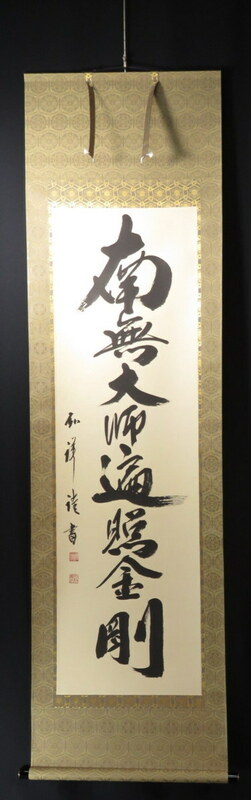 南無大師遍照金剛
弘祥謹書